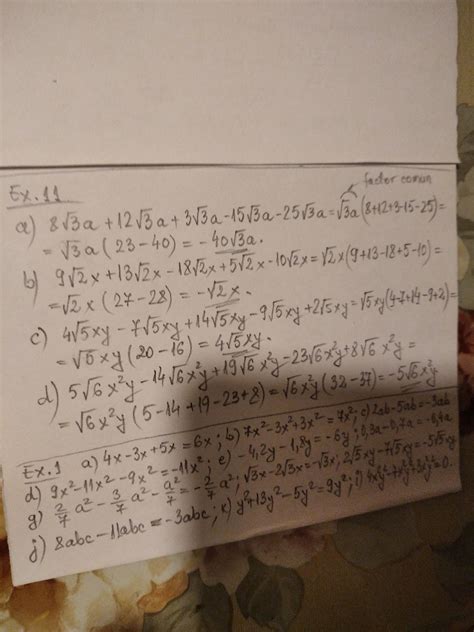 factor comun
Ex. 11
a) 8√3a + 12√3a + 3√3a - 15√3a - 25√3a = √3a (8+12+3-15-25) =
= √3a (23 - 40) = - 40√3a.
b) 9√2x + 13√2x - 18√2x + 5√2x - 10√2x = √2x (9+13-18+5-10) =
= √2x (27 - 28) = -√2x.
c) 4√5xy - 7√5xy + 14√5xy - 9√5xy + 2√5xy = √5xy (4-7+14-9+2) =
= √5xy (20 - 16) = 4√5xy.
d) 5√6x²y - 14√6x²y + 19√6x²y - 23√6x²y + 8√6x²y =
= √6x²y (5 - 14 + 19 - 23 + 8) = √6x²y (32 - 37) = -5√6x²y
Ex.1 a) 4x - 3x + 5x = 6x; b) 7x² - 3x² + 3x² = 7x²; c) 2ab - 5ab = -3ab
d) 9x² - 11x² - 9x² = -11x²; e) - 4,2y - 1,8y = - 6y; 0,3a - 0,7a = -0,4a
g) 2/7 a² - 3/7 a² - a²/7 = - 2/7 a²; √3x - 2√3x = -√3x; 2√5xy - 7√5xy = -5√5xy
j) 8abc - 11abc = -3abc; k) y² + 13y² - 5y² = 9y²; i) 4xy² - 7xy² + 3xy² = 0.